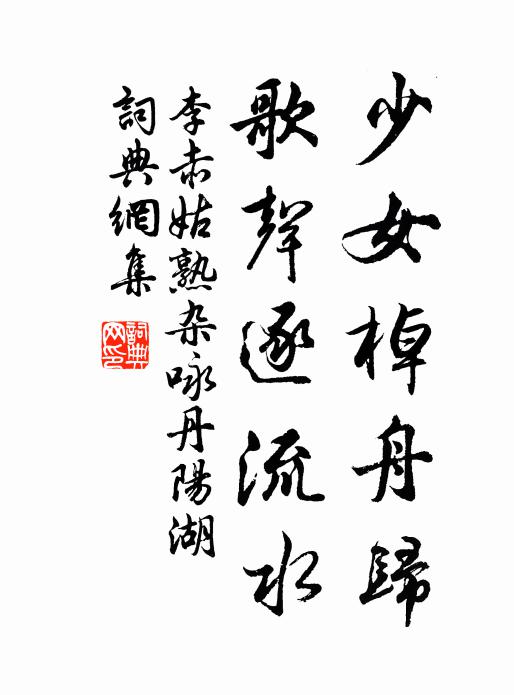 少女棹舟歸
歌聲逐流水
李赤姑熟杂咏丹陽湖
詞典網集
詞典
网印